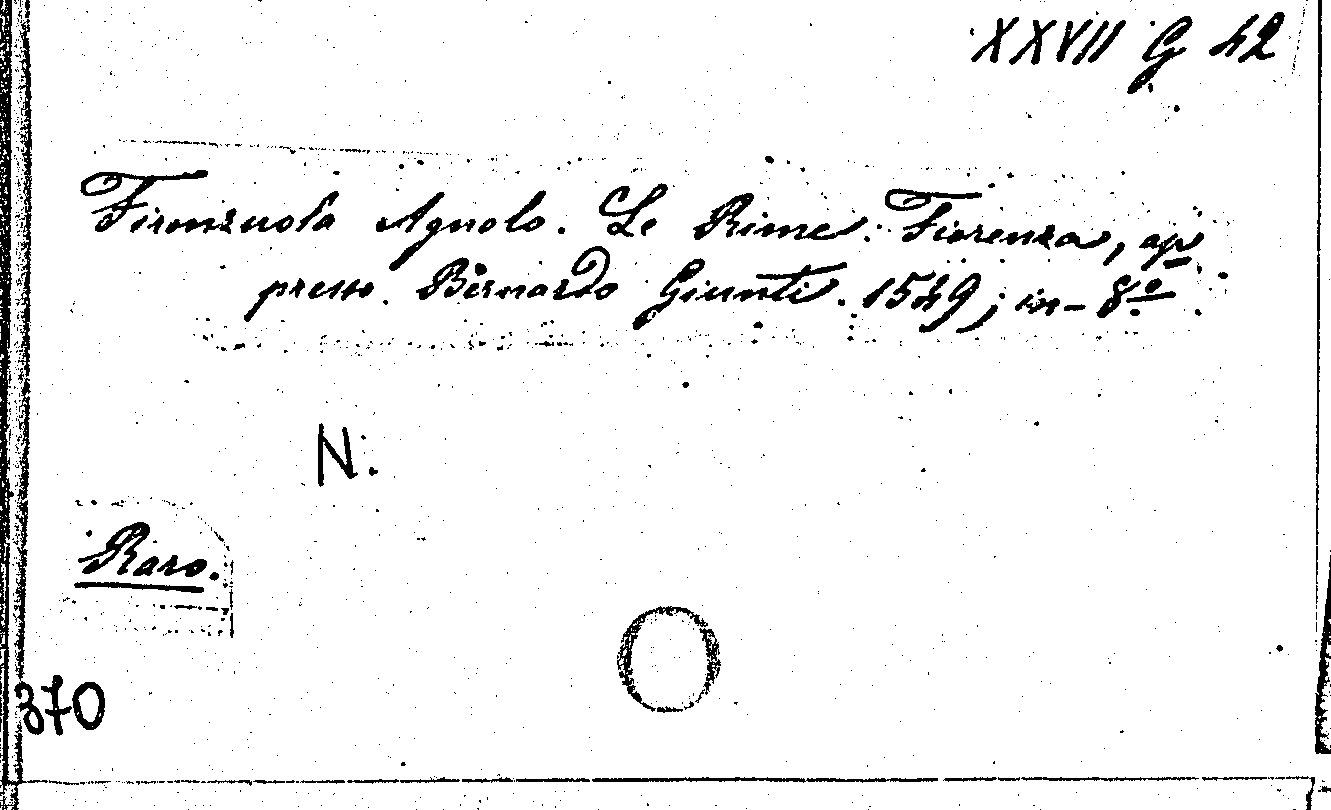 XXVII G 42
Firenzuola Agnolo. Le Rime. Fiorenza, ap
presso Bernardo Giunti. 1549; in-8º
N.
Raro.
370